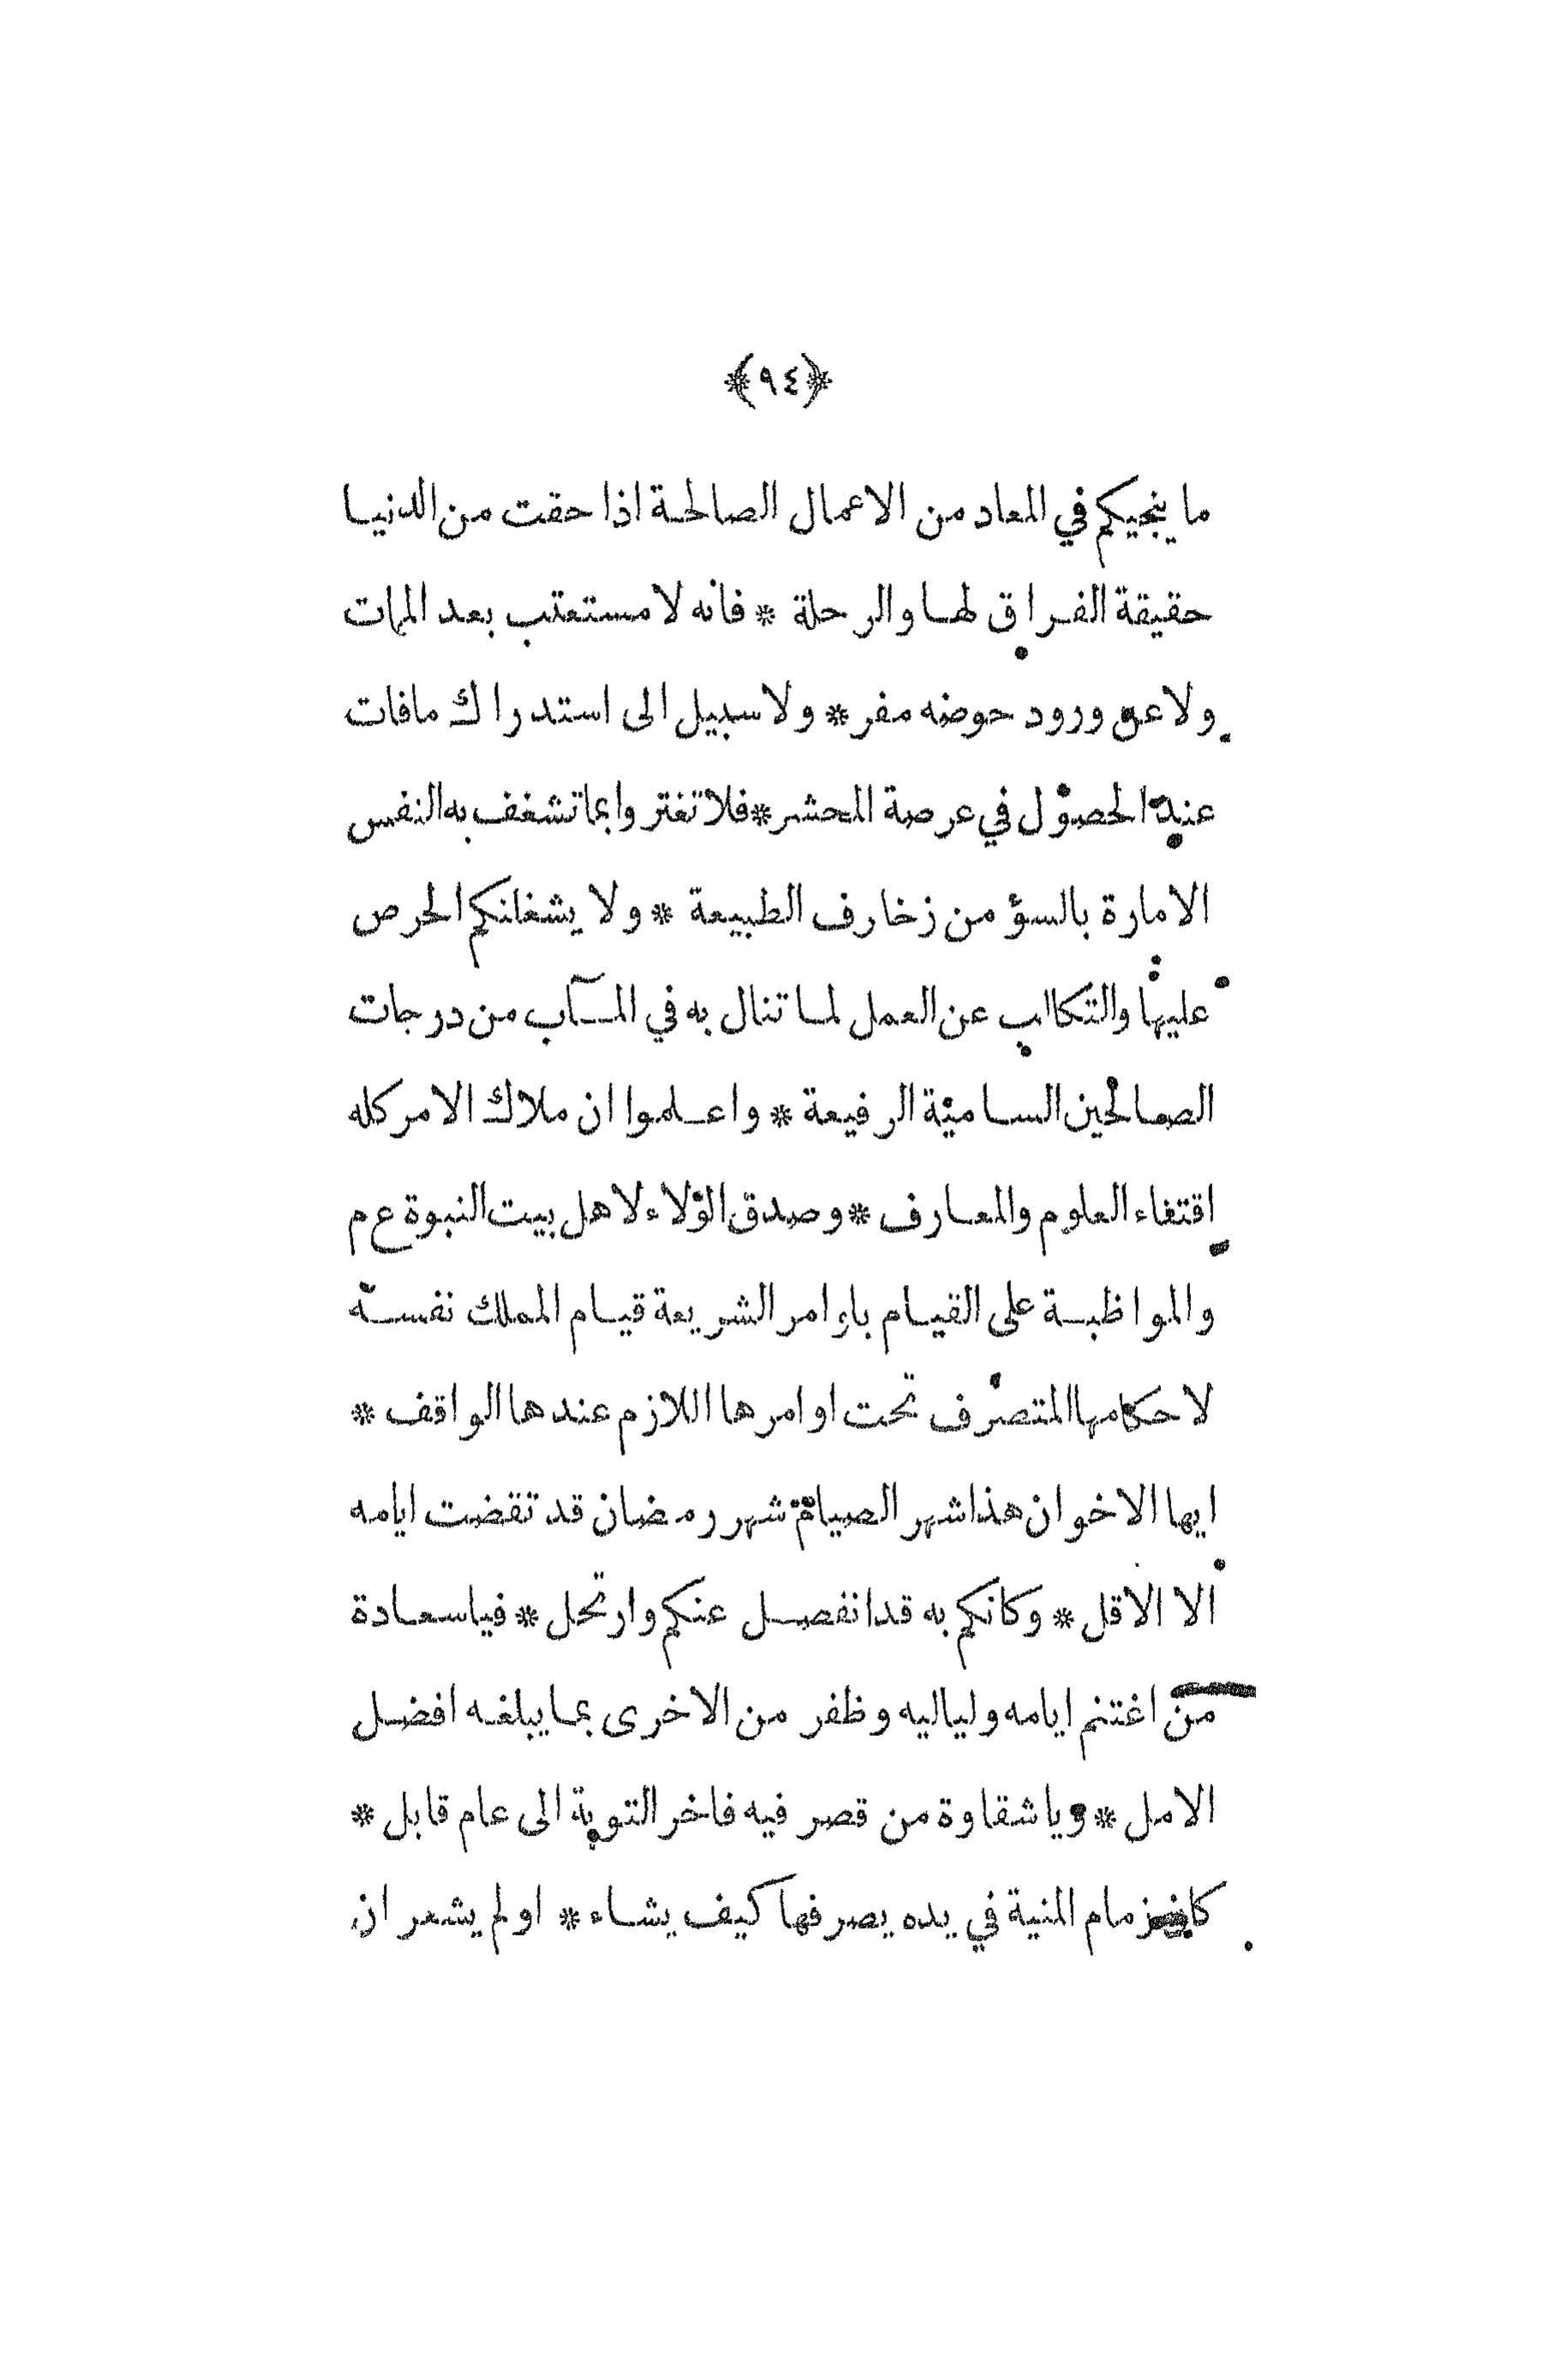 ﴿٩٤﴾
ما ينجيكم في المعاد من الاعمال الصالحة اذا حقت من الدنيا
حقيقة الفراق لها والرحلة * فانه لا مستعتب بعد الممات
ولا عن ورود حوضه مفر * ولا سبيل الى استدراك مافات
عند الحصول في عرصة المحشر * فلا تغتروا بما تشغف به النفس
الامارة بالسؤ من زخارف الطبيعة * ولا يشغلنكم الحرص
عليها والتكالب عن العمل لما تنال به في المآب من درجات
الصالحين السامية الرفيعة * واعلموا ان ملاك الامر كله
اقتفاء العلوم والمعارف * وصدق الولاء لاهل بيت النبوة ع م
والمواظبة على القيام باوامر الشريعة قيام المملك نفسه
لاحكامها المتصرف تحت اوامرها اللازم عندها الواقف *
ايها الاخوان هذا شهر الصيام شهر رمضان قد تقضت ايامه
الا الاقل * وكانكم به قد انفصل عنكم وارتحل * فيا سعادة
من اغتنم ايامه ولياليه وظفر من الاخرى بما يبلغه افضل
الامل * ويا شقاوة من قصر فيه فاخر التوبة الى عام قابل *
زمام المنية في يده يصرفها كيف يشاء * اولم يشعر ان